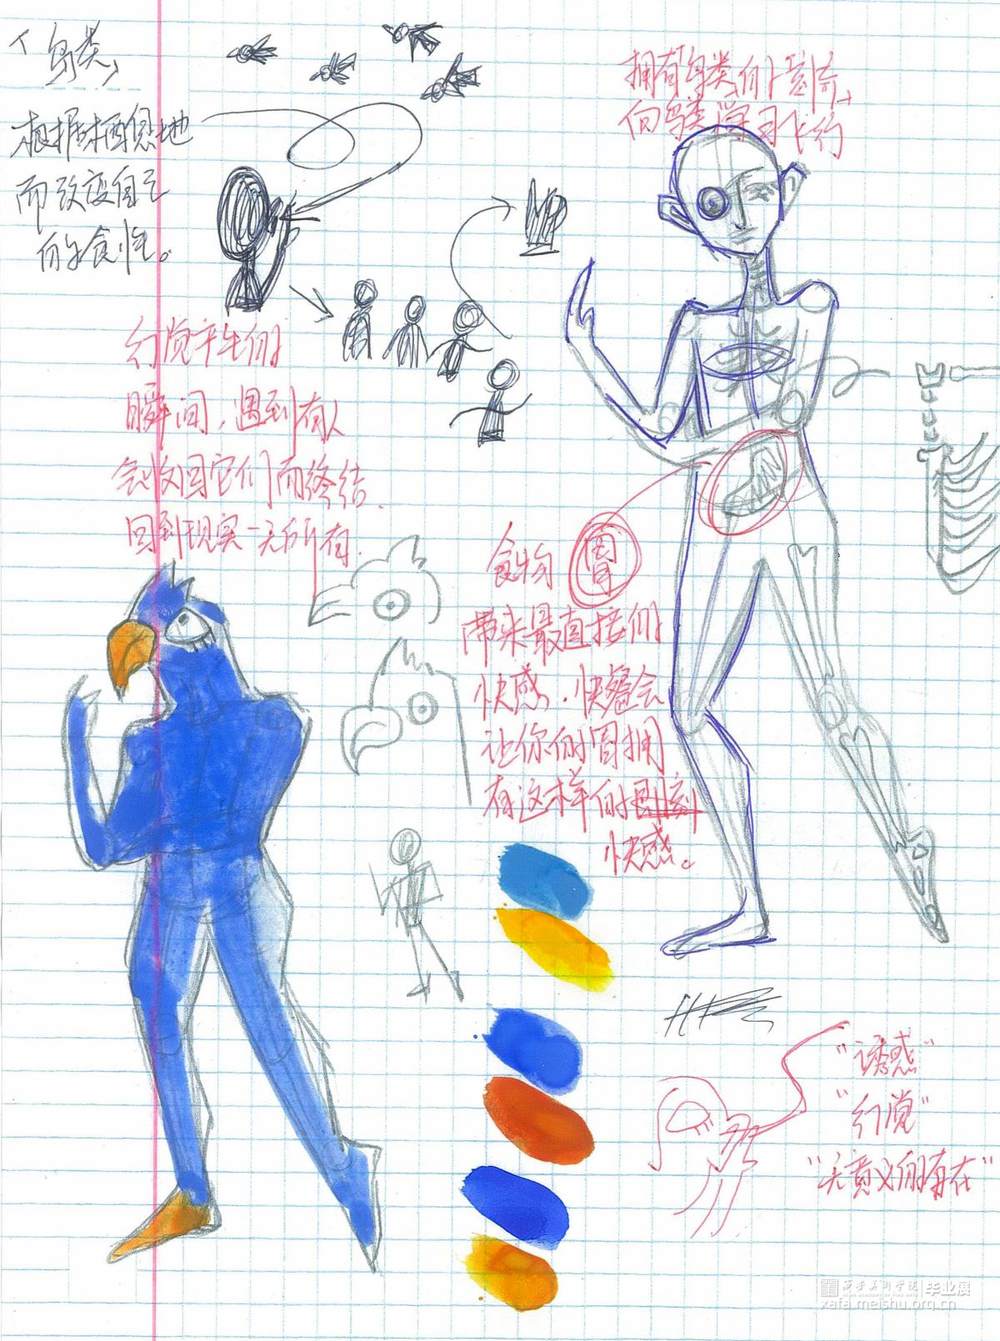 《鸟类》
根据栖息地
而改变自己
的食性。
拥有鸟类的
向鸟类学习飞行
幻觉产生的
瞬间，遇到有人
会收回它们而终结
回到现实一无所有
食物 胃
带来最直接的
快感，快餐会
让你的胃拥
有这样的
快感。
"诱惑"
"幻觉"
"无意义的存在"
西安美术学院 毕业展
xafa.meishu.org.cn